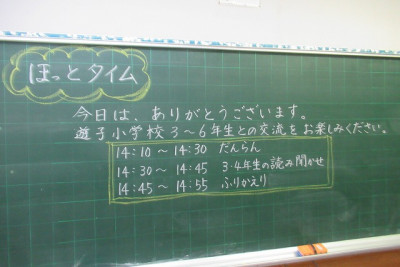 ほっとタイム
今日は、ありがとうございます。
遊子小学校3～6年生との交流をお楽しみください。
14:10 ～ 14:30 だんらん
14:30 ～ 14:45 3・4年生の読み聞かせ
14:45 ～ 14:55 ふりかえり